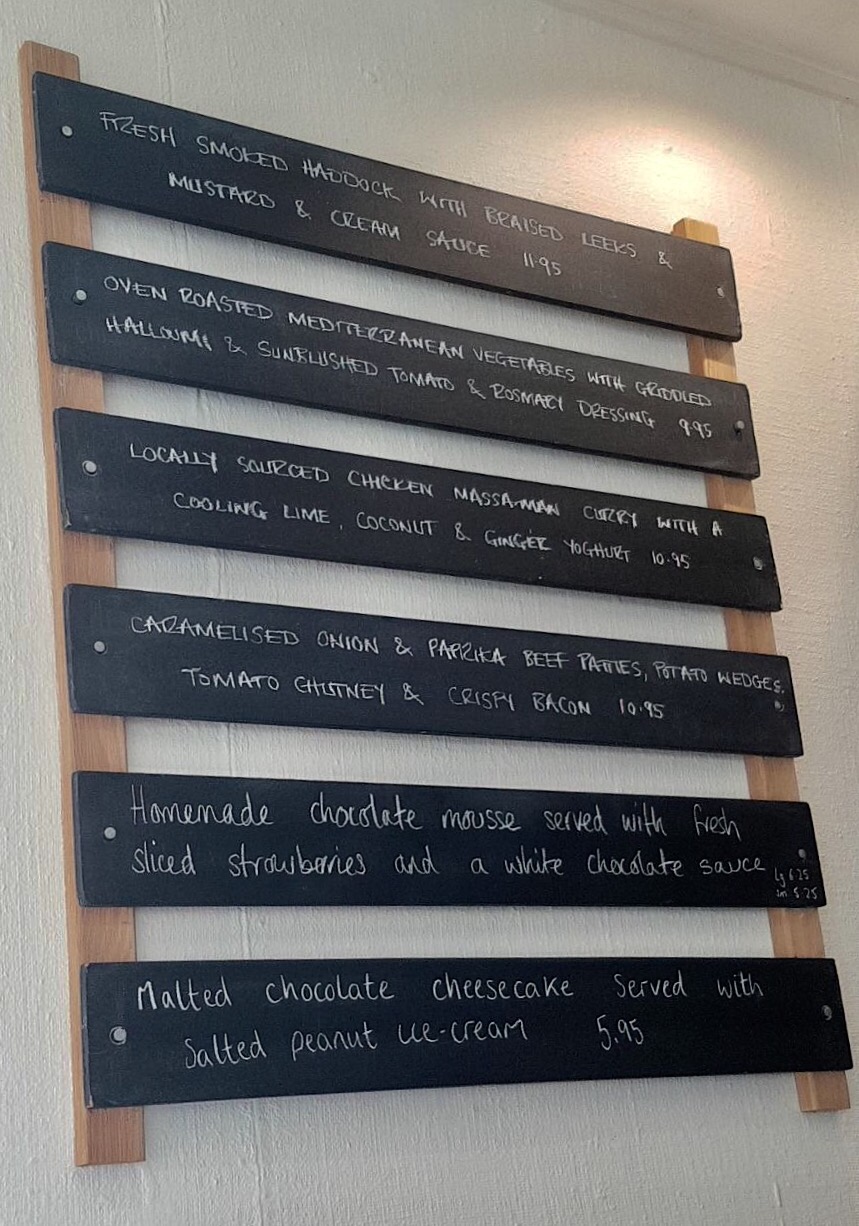 FRESH SMOKED HADDOCK WITH BRAISED LEEKS &
MUSTARD & CREAM SAUCE 11.95
OVEN ROASTED MEDITERRANEAN VEGETABLES WITH GRIDDLED
HALLOUMI & SUNBLUSHED TOMATO & ROSMARY DRESSING 9.95
LOCALLY SOURCED CHICKEN MASSAMAN CURRY WITH A
COOLING LIME, COCONUT & GINGER YOGHURT 10.95
CARAMELISED ONION & PAPRIKA BEEF PATTIES, POTATO WEDGES,
TOMATO CHUTNEY & CRISPY BACON 10.95
Homemade chocolate mousse served with fresh
sliced strawberries and a white chocolate sauce
lg 6.25
sm 5.25
Malted chocolate cheesecake served with
salted peanut ice-cream 5.95